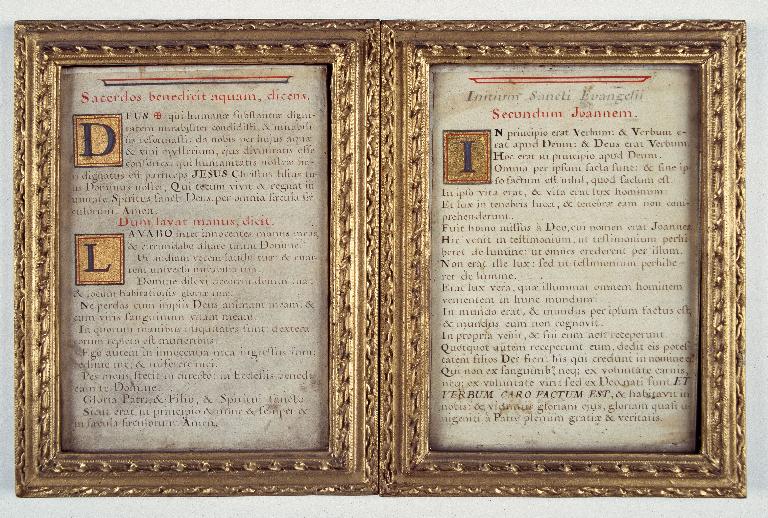 Sacerdos benedicit aquam, dicens.
DEUS ✠ qui humanæ substantiæ digni-
tatem mirabiliter condidisti, & mirabili-
us reformasti: da nobis per hujus aquæ
& vini mysterium, ejus divinitatis esse
consortes, qui humanitatis nostræ
dignatus est particeps JESUS Christus filius tu-
us Dominus noster, Qui tecum vivit & regnat in
unitate Spiritus sancti Deus, per omnia sæcula sæ-
culorum. Amen.
Dum lavat manus, dicit.
LAVABO inter innocentes manus meas,
& circumdabo altare tuum Domine.
Ut audiam vocem laudis tuæ: & enar-
rem universa mirabilia tua.
Domine dilexi decorem domus tuæ:
& locum habitationis gloriæ tuæ.
Ne perdas cum impiis Deus animam meam: &
cum viris sanguinum vitam meam.
In quorum manibus iniquitates sunt: dextera e-
orum repleta est muneribus.
Ego autem in innocentia mea ingressus sum:
redime me, & miserere mei.
Pes meus stetit in directo: in Ecclesiis bened-
cam te Domine.
Gloria Patri, & Filio, & Spiritui sancto.
Sicut erat in principio & nunc & semper &
in sæcula sæculorum. Amen.
Initium Sancti Evangelii
Secundum Joannem.
IN principio erat Verbum: & Verbum e-
rat apud Deum: & Deus erat Verbum.
Hoc erat in principio apud Deum.
Omnia per ipsum facta sunt: & sine ip-
so factum est nihil, quod factum est.
In ipso vita erat, & vita erat lux hominum:
Et lux in tenebris lucet, & tenebræ eam non com-
prehenderunt.
Fuit homo missus à Deo, cui nomen erat Joannes
Hic venit in testimonium, ut testimonium perhi-
beret de lumine: ut omnes crederent per illum.
Non erat ille lux: sed ut testimonium perhibe-
ret de lumine.
Erat lux vera, quæ illuminat omnem hominem
venientem in hunc mundum.
In mundo erat, & mundus per ipsum factus est,
& mundus eum non cognovit.
In propria venit, & sui eum non receperunt.
Quotquot autem receperunt eum, dedit eis potes-
tatem filios Dei fieri: his qui credunt in nomine ej.
Qui non ex sanguinib', neq; ex voluntate carnis,
neq; ex voluntate viri: sed ex Deo nati sunt. ET
VERBUM CARO FACTUM EST, & habitavit in
nobis: & vidimus gloriam ejus, gloriam quasi u-
nigeniti à Patre plenum gratiæ & veritatis.